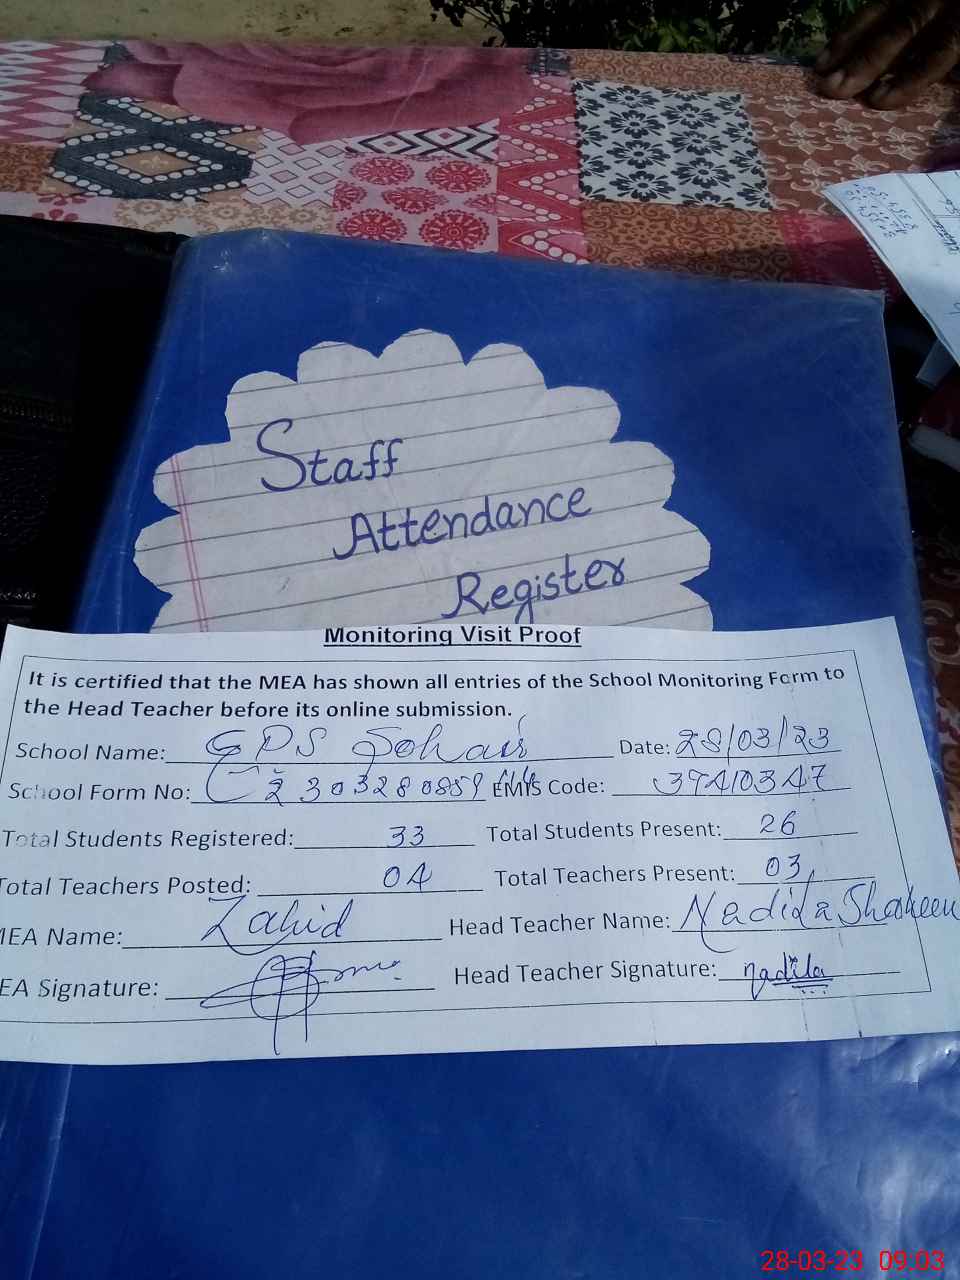 Staff
Attendance
Register
Monitoring Visit Proof
It is certified that the MEA has shown all entries of the School Monitoring Form to
the Head Teacher before its online submission.
School Name: GPS Sohair Date: 28/03/23
School Form No: 2303280859 EMIS Code: 37410347
Total Students Registered: 33 Total Students Present: 26
Total Teachers Posted: 04 Total Teachers Present: 03
MEA Name: Zahid Head Teacher Name: Nadila Shaheen
EA Signature: Head Teacher Signature: nadila
28-03-23 09:03